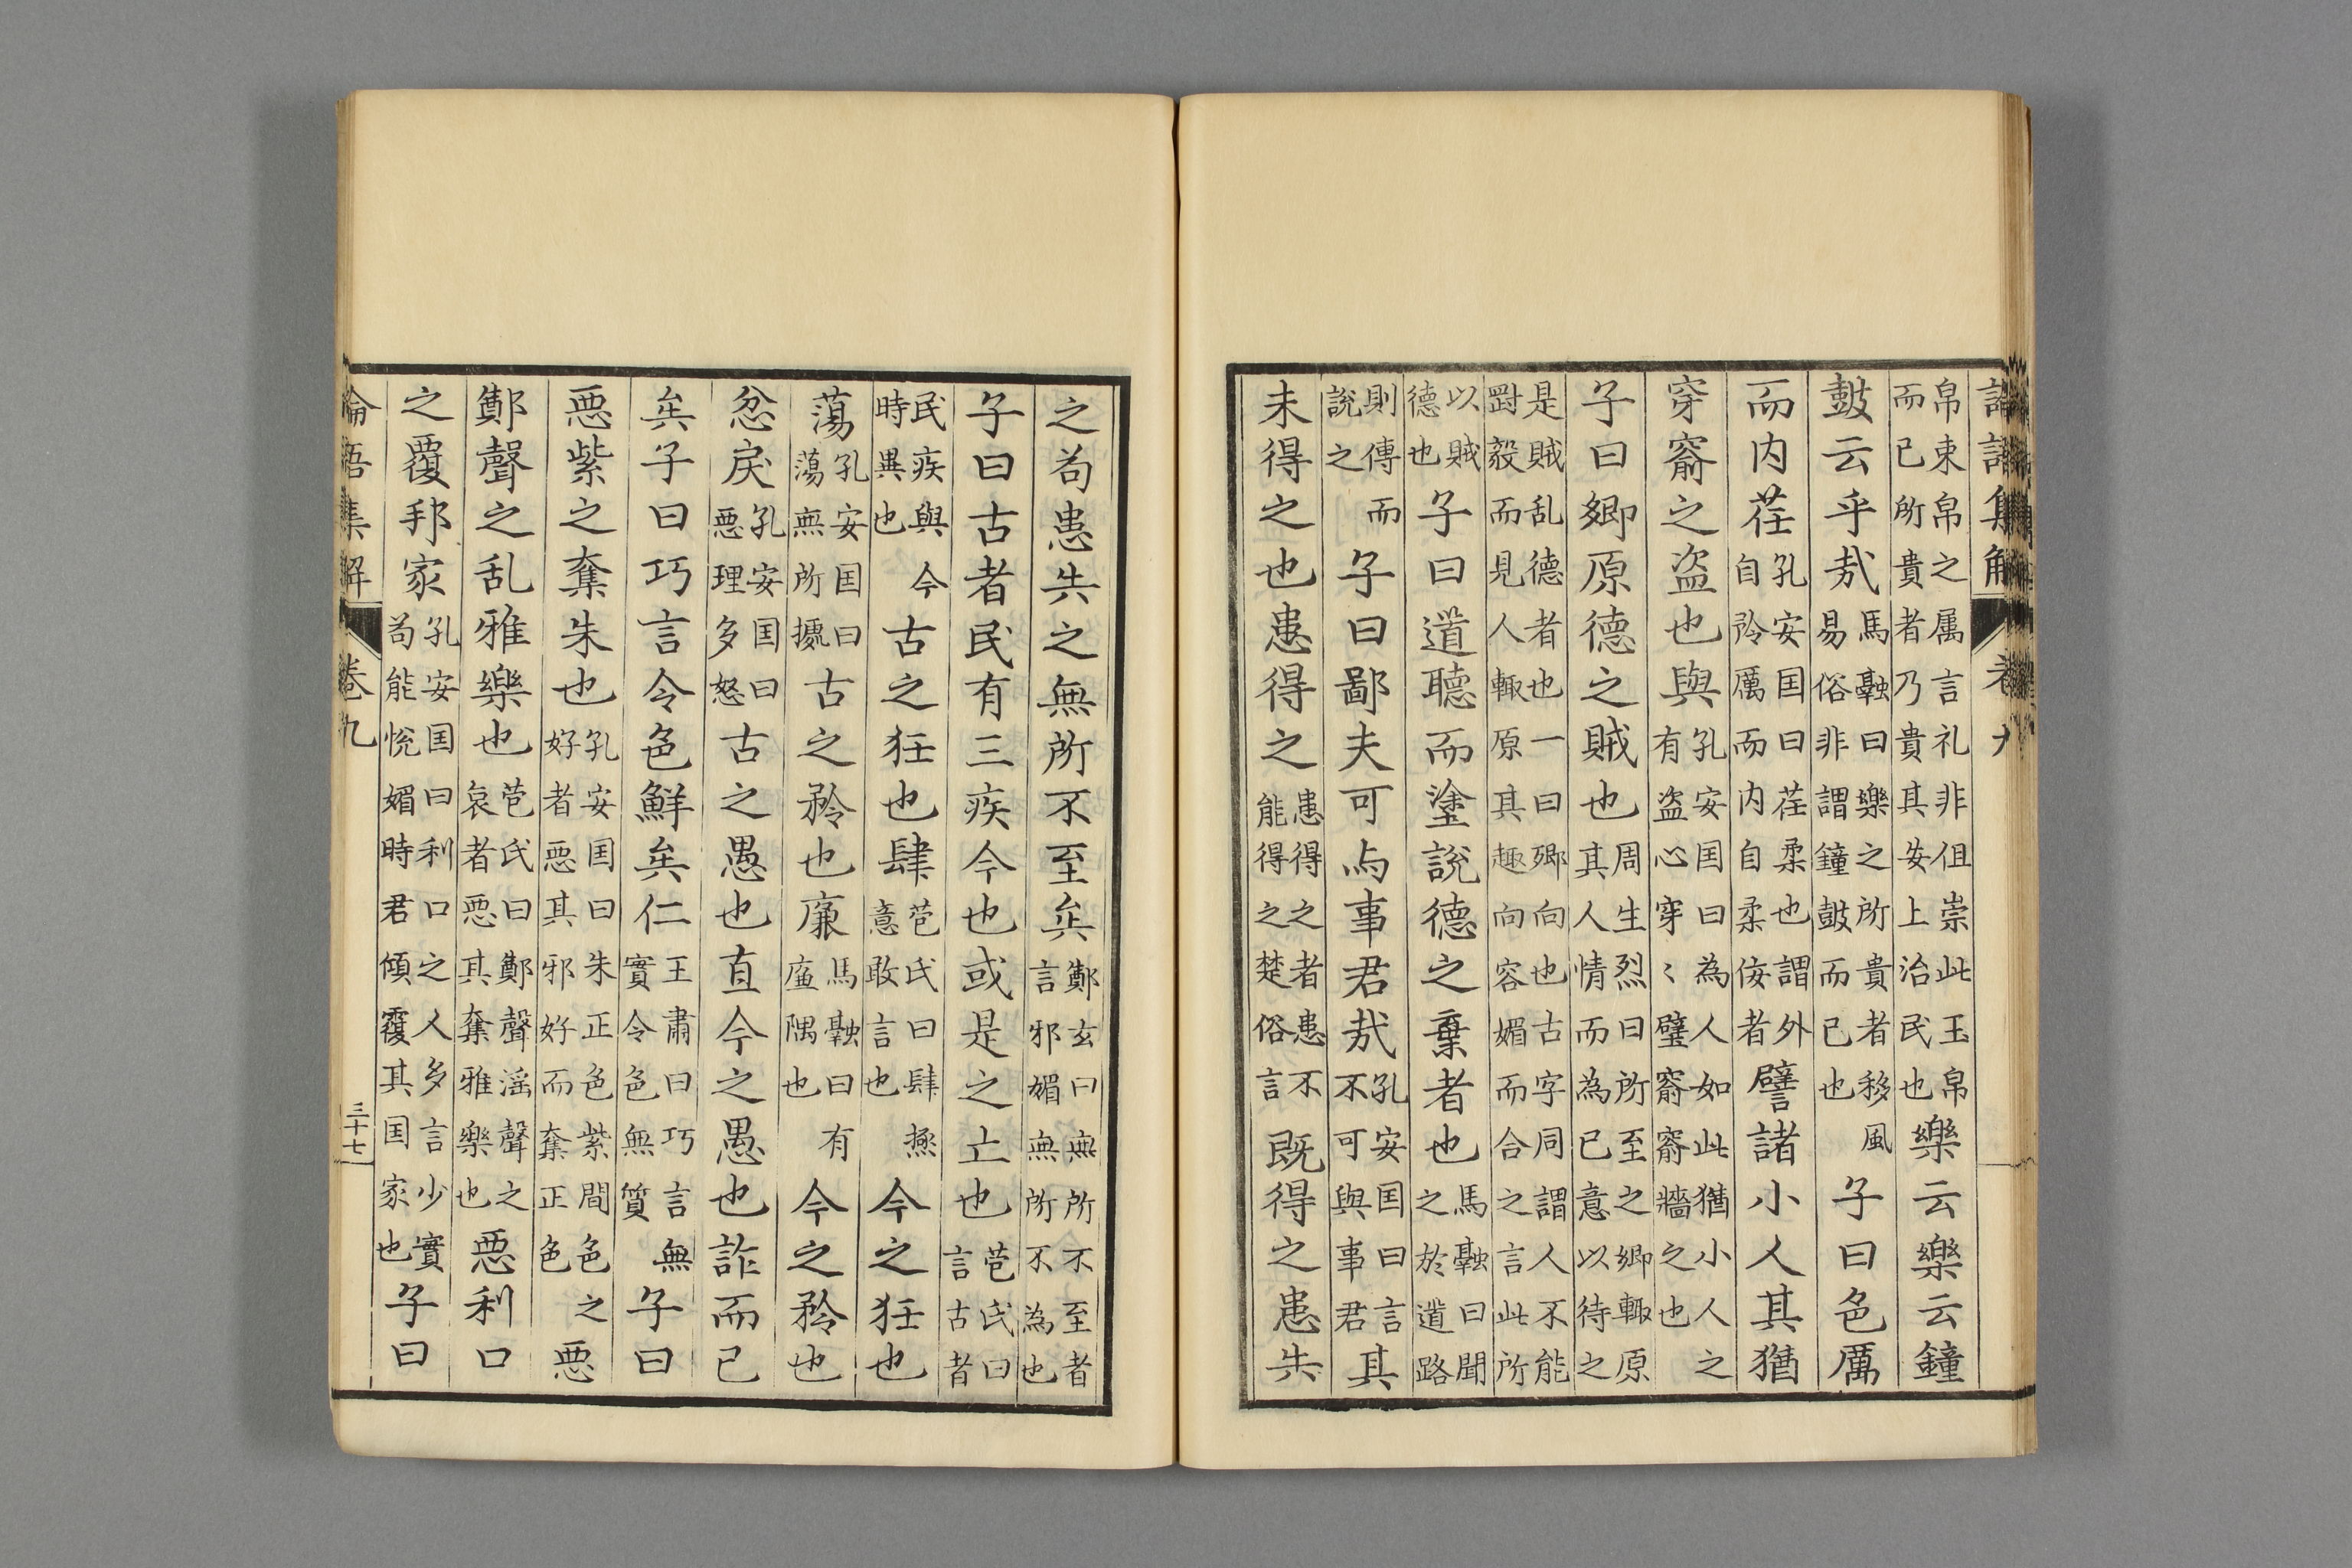 帛束帛之属言礼非但崇此玉帛
而已所貴者乃貴其安上治民也樂云樂云鐘
鼓云乎㢤馬融曰樂之所貴者移風
易俗非謂鐘鼓而已也子曰色厲
而内荏孔安国曰荏柔也謂外
自矜厲而内自柔侫者譬諸小人其猶
穿窬之盗也與孔安国曰為人如此猶小人之
有盗心穿〻壁窬窬牆之也
子曰郷原德之賊也周生烈曰所至之郷輙原
其人情而為已意以待之
是賊乱德者也一曰郷向也古字同謂人不能
罸毅而見人輙原其趣向容媚而合之言此所
以賊
德也子曰道聴而塗說德之棄者也馬融曰聞
之於道路
則傳而
說之子曰鄙夫可与事君㢤孔安国曰言
不可與事君其
未得之也患得之患得之者患不
能得之楚俗言既得之患失
之苟患失之無所不至矣鄭玄曰無所不至者
言邪媚無所不為也
子曰古者民有三疾今也或是之亡也苞氏曰
言古者
民疾與今
時異也古之狂也肆苞氏曰肆極
意敢言也今之狂也
蕩孔安国曰
蕩無所據古之矜也廉馬融曰有
廉隅也今之矜也
忿戻孔安国曰
悪理多怒古之愚也直今之愚也詐而已
矣子曰巧言令色鮮矣仁王肅曰巧言無
實令色無質子曰
悪紫之奪朱也孔安国曰朱正色紫間色之
好者悪其邪好而奪正色悪
鄭聲之乱雅樂也苞氏曰鄭聲滛聲之
哀者悪其奪雅樂也悪利口
之覆邦家孔安国曰利口之人多言少實
苟能悦媚時君傾覆其国家也子曰
論語集解
卷九
三十七